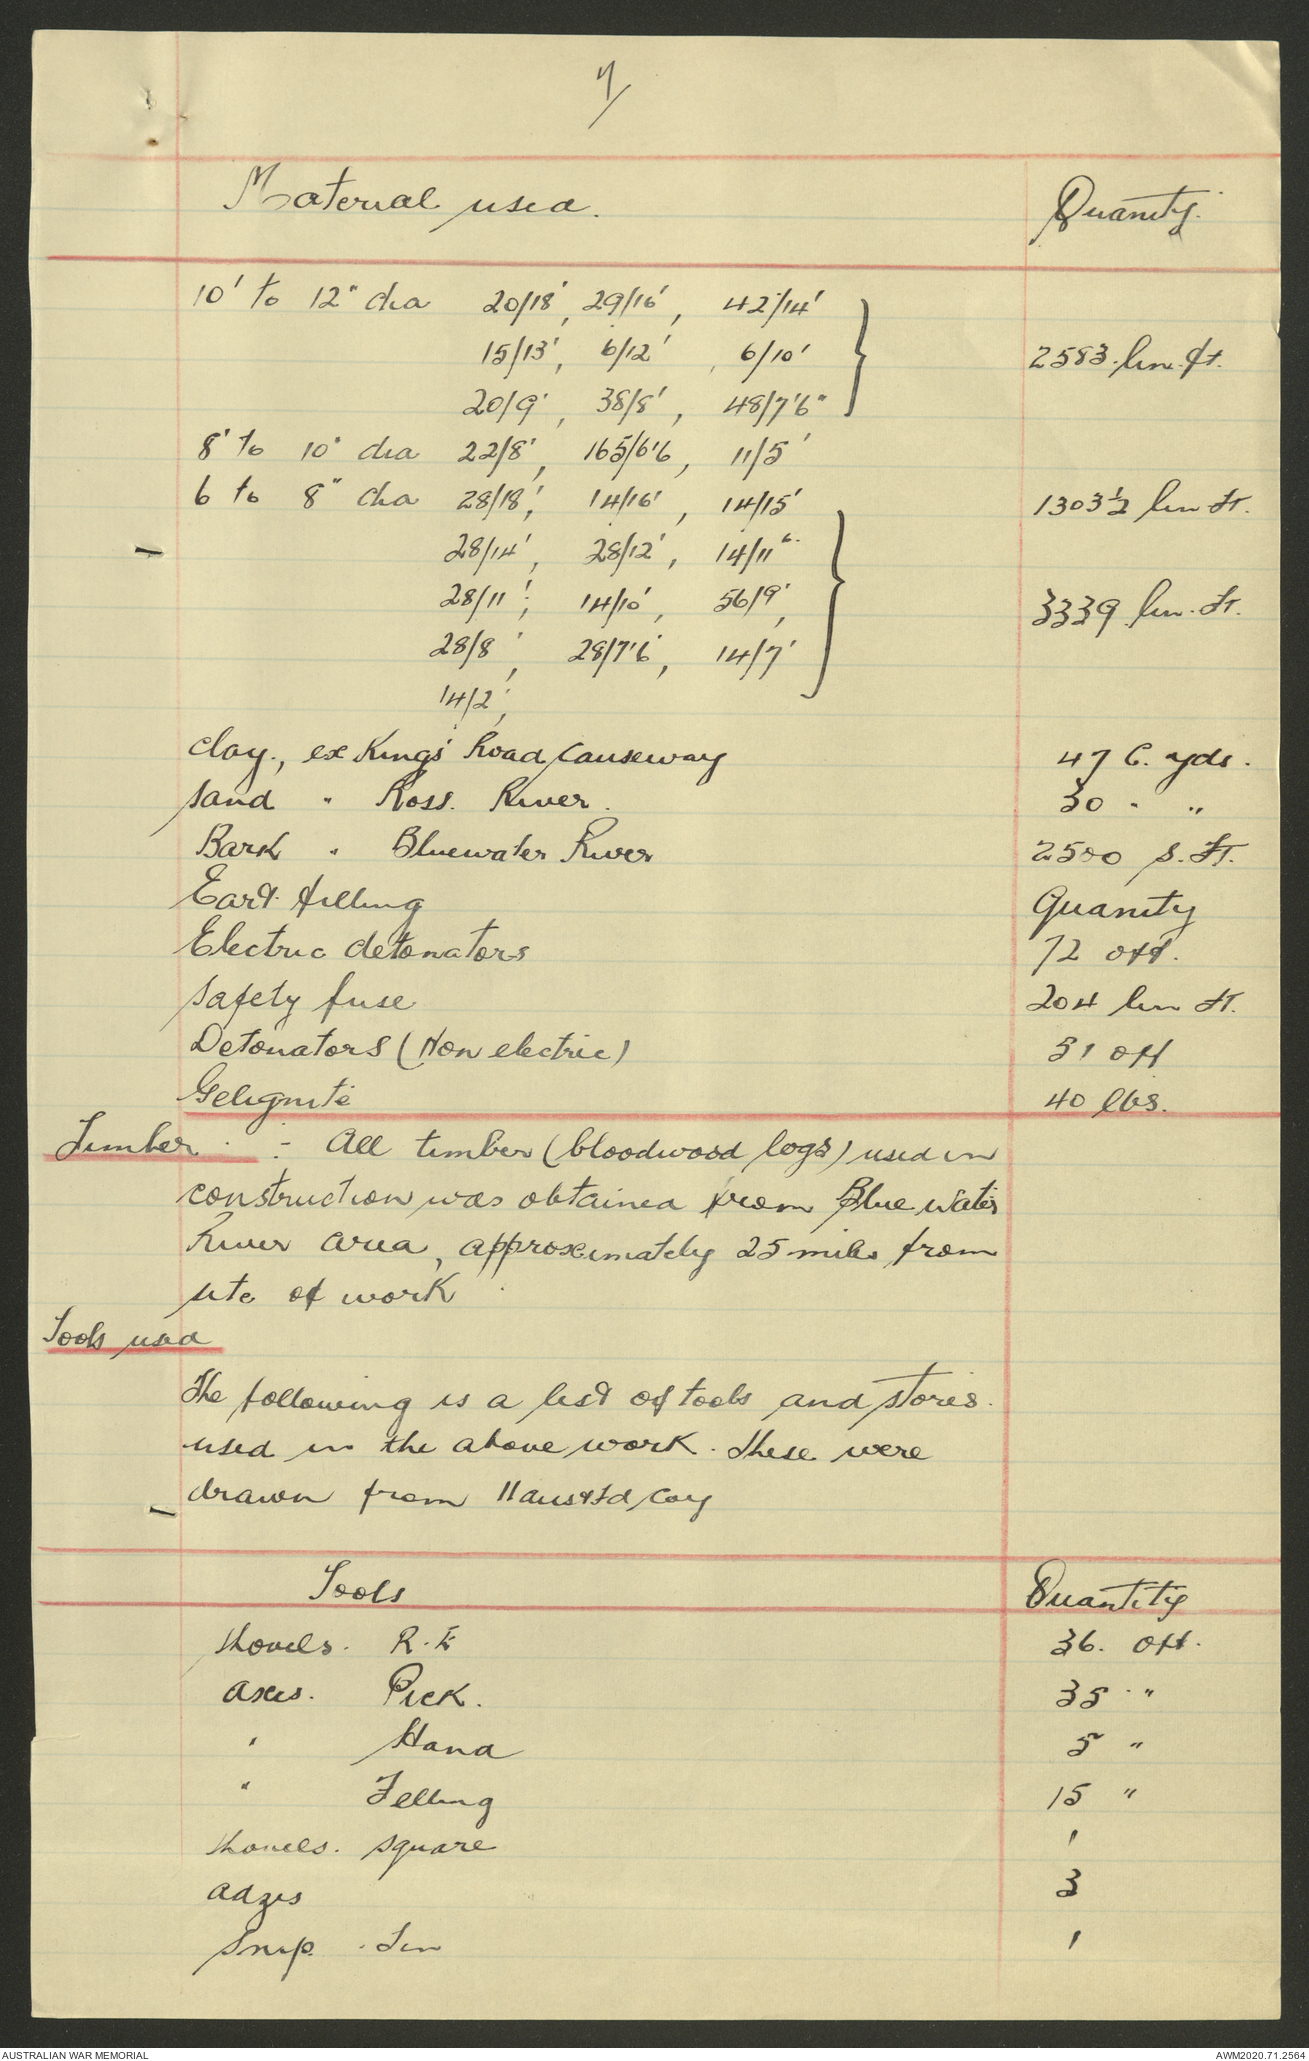 7/
Material used. Quanity.
10' to 12" dia 20/18', 29/16', 42/14'
15/13', 6/12', 6/10'
2583 lin. ft.
20/9', 38/8', 48/7'6"
8' to 10" dia 22/8', 165/6'6, 11/5'
6 to 8" dia 28/18', 14/16', 14/15' 1303½ lin ft.
28/14', 28/12', 14/11'6"
28/11', 14/10', 56/9', 3339 lin. ft.
28/8', 28/7'6, 14/7'
14/2',
Clay., ex Kings Road Causeway 47 C. yds.
Sand " Ross. River. 30 " "
Bark " Bluewater River 2500 s. ft.
Eart filling Quanity
Electric detonators 72 off.
Safety fuse 204 lin ft.
Detonators (Non electric) 51 off
Gelignite 40 lbs.
Timber :- All timber (bloodwood logs) used in
construction was obtained from Blue water
River area, approximately 25 miles from
site of work
Tools used
The following is a list of tools and stores
used in the above work. These were
drawn from 11 Aust Fd Coy
Tools Quantity
Shovels. R.E 36. off.
Axes. Pick. 35 "
" Hand 5 "
" Felling 15 "
Shovels. square 1
Adzes 3
Snip. Tin 1
AUSTRALIAN WAR MEMORIAL AWM2020.71.2564